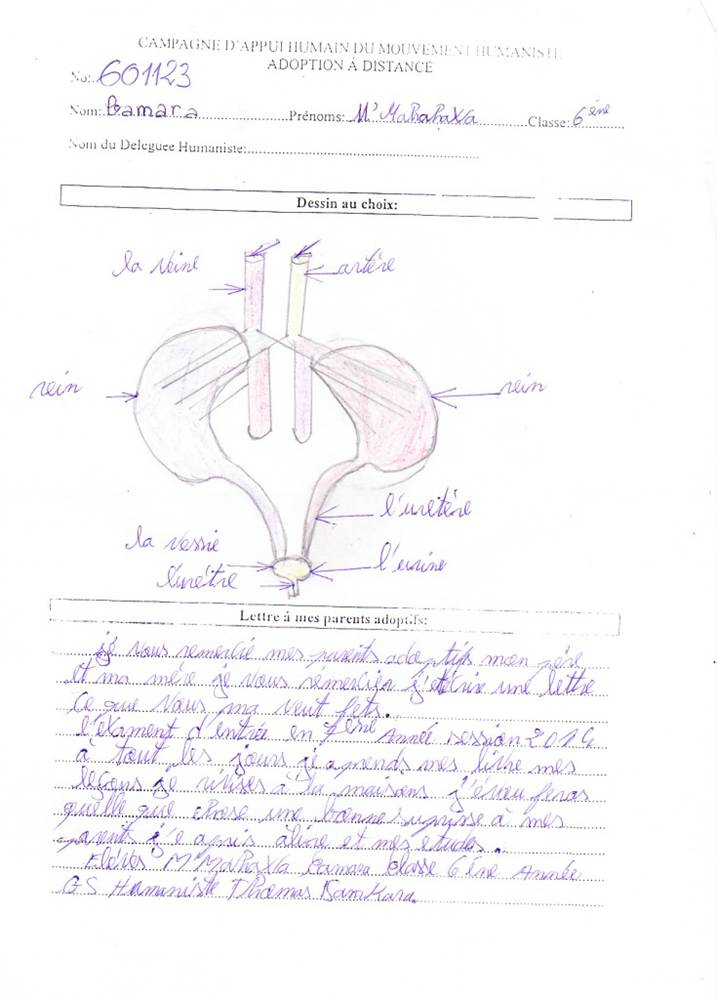 CAMPAGNE D'APPUI HUMAIN DU MOUVEMENT HUMANISTE
ADOPTION À DISTANCE
No: 601123
Nom: Camara Prénoms: M' MaRaRaXa Classe: 6 éne
Nom du Deleguee Humaniste:
Dessin au choix:
la veine
artére
rein
rein
l'uretére
la vessie
l'urine
l'urétre
Lettre á mes parents adoptifs:
je vous remercié mes parents adoptifs mon pére
et ma mére je vous remercier j'etécrire une lettre
ce que vous ma veut fets.
l'éxament d'entrée en 7 éne Année session 2014
à tout les jours je aprends mes lithe mes
leçons je révises à la maisons j'é vou feras
quelle que chose une bonne surprisse à mes
parents j'e apris àlire et mes etudes.
Eléves M'MaRaXa Camara Classe 6 éne Année
GS Humaniste Thomas SanKara.